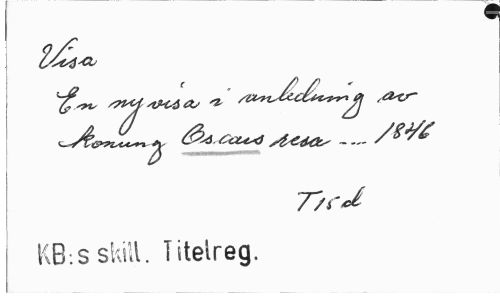 Visa
En ny visa i anledning av
konung Oscars resa .... 1846
T15d
KB:s skill. Titelreg.